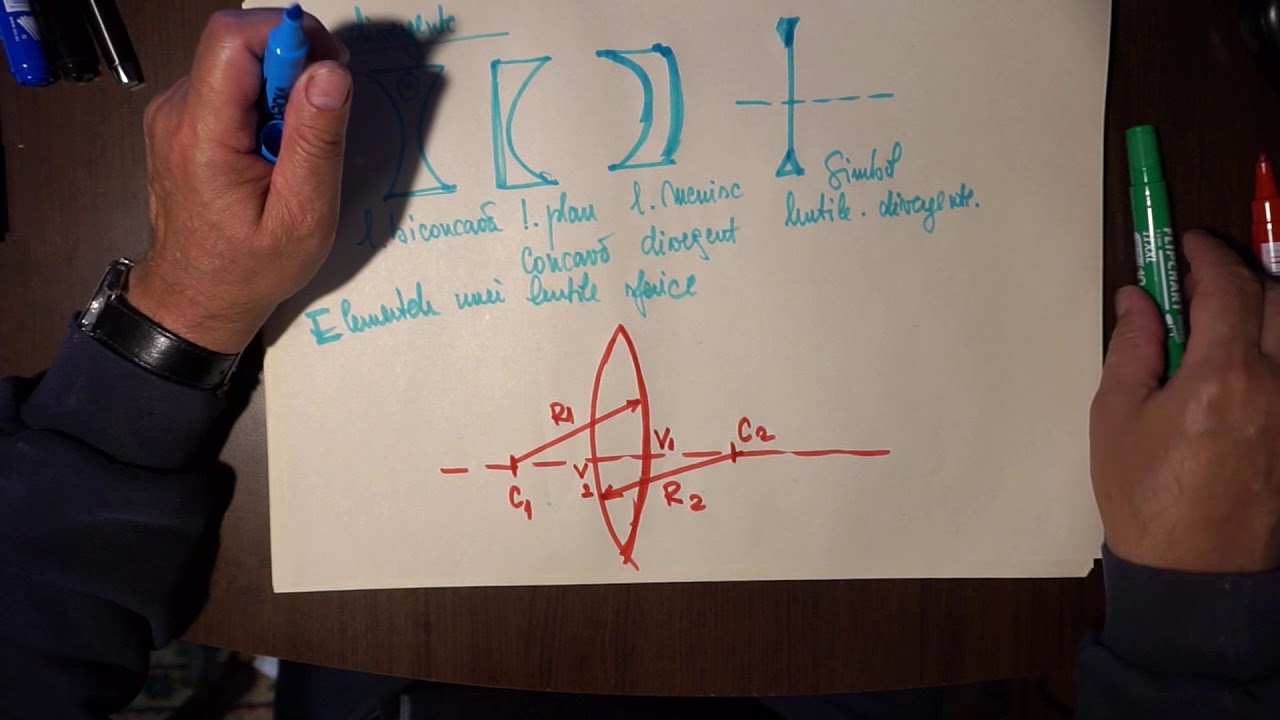 divergente
l. biconcavă l. plan concavă
l. menisc divergent
Simbol
lentile. divergente.
Elementele unei lentile sferice
R1
V1
C2
V2
C1
R2
FLIPCHART